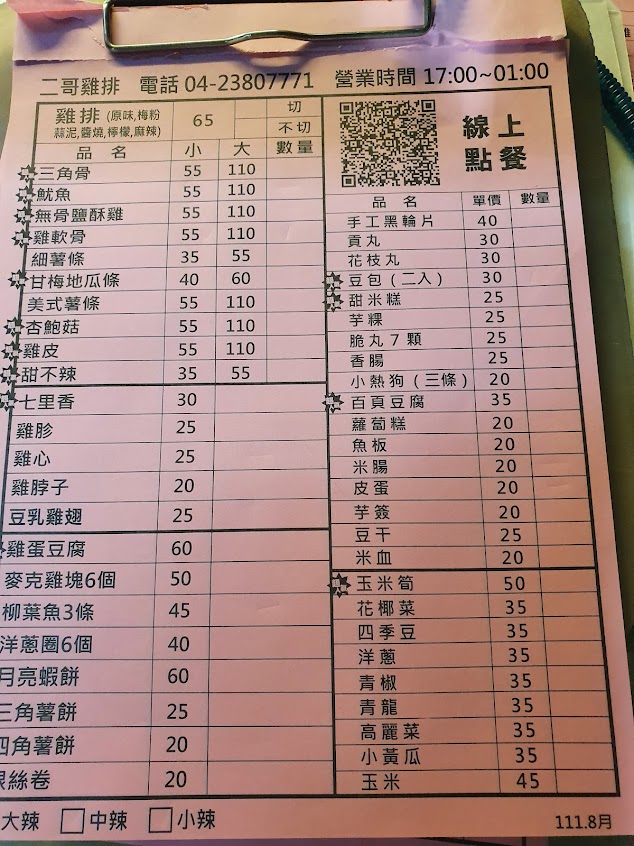 二哥雞排 電話 04-23807771 營業時間 17:00~01:00
雞排 (原味,梅粉
蒜泥,醬燒,檸檬,麻辣) 65 切
不切
品名 小 大 數量
三角骨 55 110
魷魚 55 110
無骨鹽酥雞 55 110
雞軟骨 55 110
細薯條 35 55
甘梅地瓜條 40 60
美式薯條 55 110
杏鮑菇 55 110
雞皮 55 110
甜不辣 35 55
七里香 30
雞胗 25
雞心 25
雞脖子 20
豆乳雞翅 25
雞蛋豆腐 60
麥克雞塊6個 50
柳葉魚3條 45
洋蔥圈6個 40
月亮蝦餅 60
三角薯餅 25
四角薯餅 20
銀絲卷 20
線上
點餐
品名 單價 數量
手工黑輪片 40
貢丸 30
花枝丸 30
豆包(二入) 30
甜米糕 25
芋粿 25
脆丸7顆 25
香腸 25
小熱狗(三條) 20
百頁豆腐 35
蘿蔔糕 20
魚板 20
米腸 20
皮蛋 20
芋簽 20
豆干 25
米血 20
玉米筍 50
花椰菜 35
四季豆 35
洋蔥 35
青椒 35
青龍 35
高麗菜 35
小黃瓜 35
玉米 45
大辣 中辣 小辣
111.8月